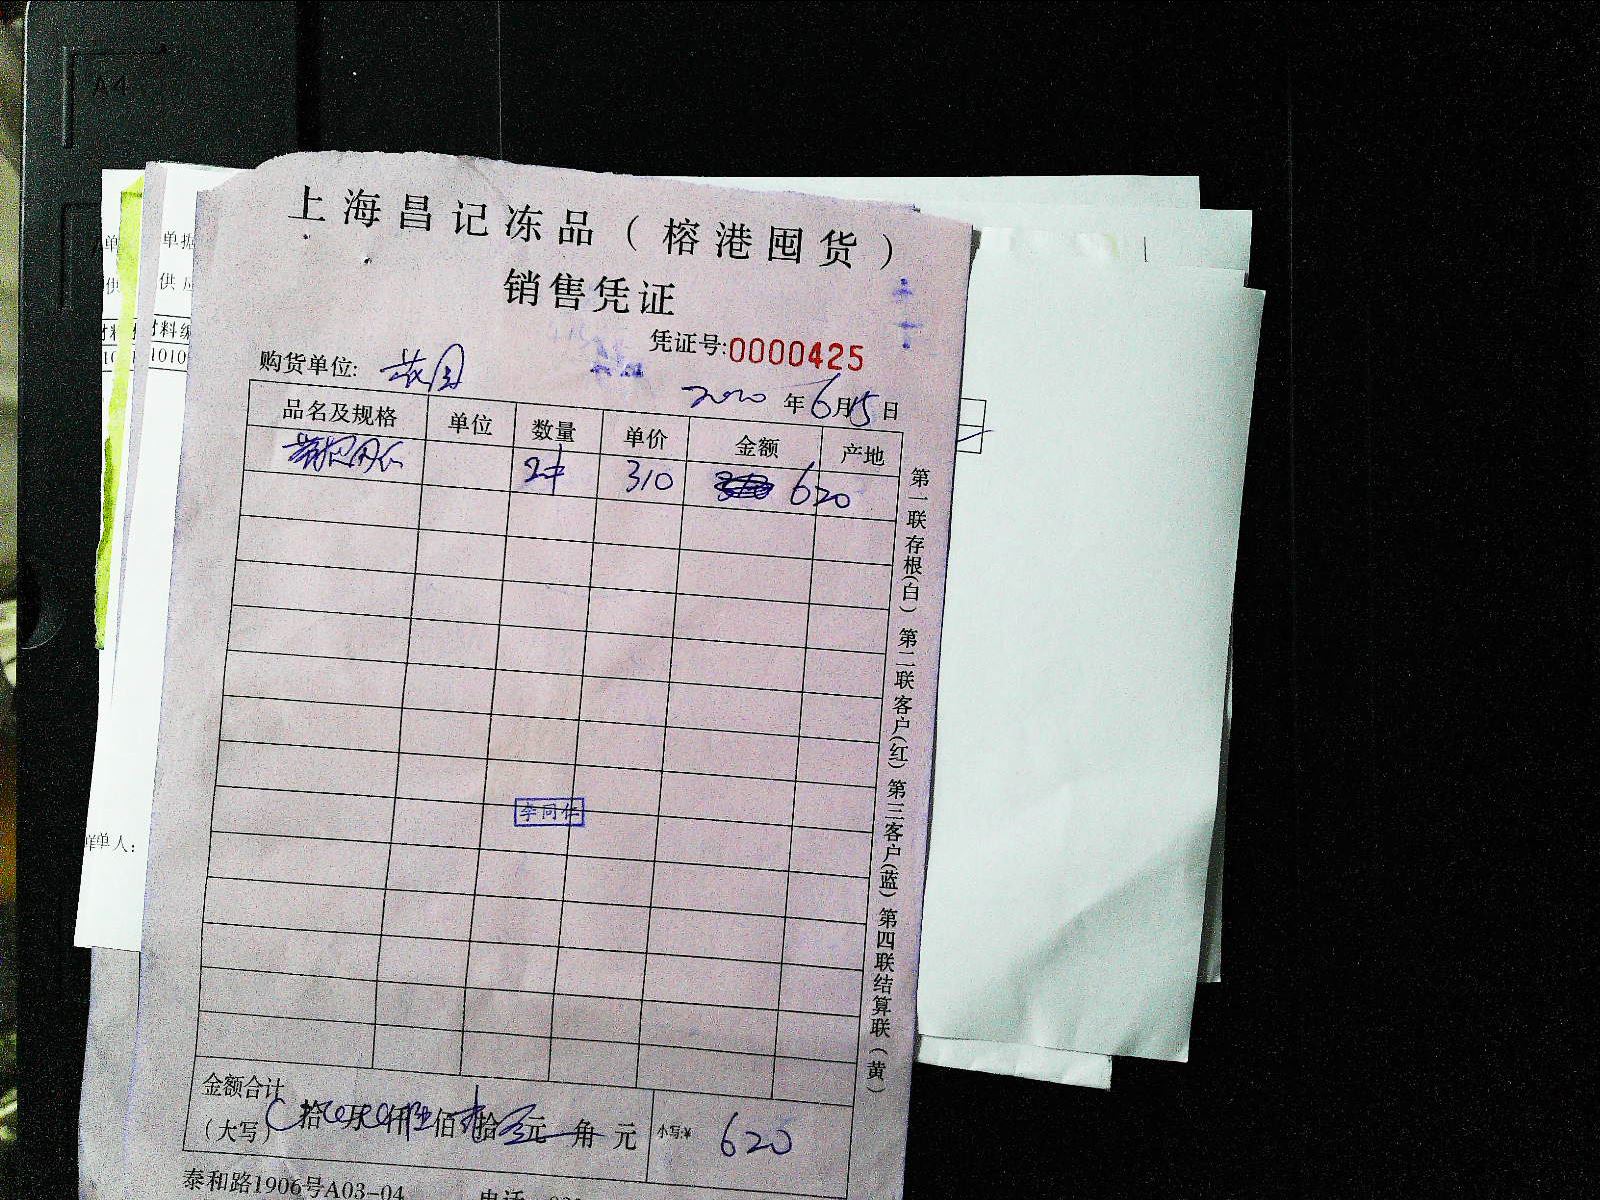 A4
上海昌记冻品（榕港囤货）
销售凭证
凭证号:0000425
购货单位: 花园
2020年6月15日
品名及规格 单位 数量 单价 金额 产地
2件 310 620
李同仁
第一联存根(白) 第二联客户(红) 第三客户(蓝) 第四联结算联(黄)
金额合计
(大写) 拾 万 仟陆佰贰拾零元 角 元 小写:¥ 620
泰和路1906号A03-04 电话
单据
供应
材料编
1010
单人: